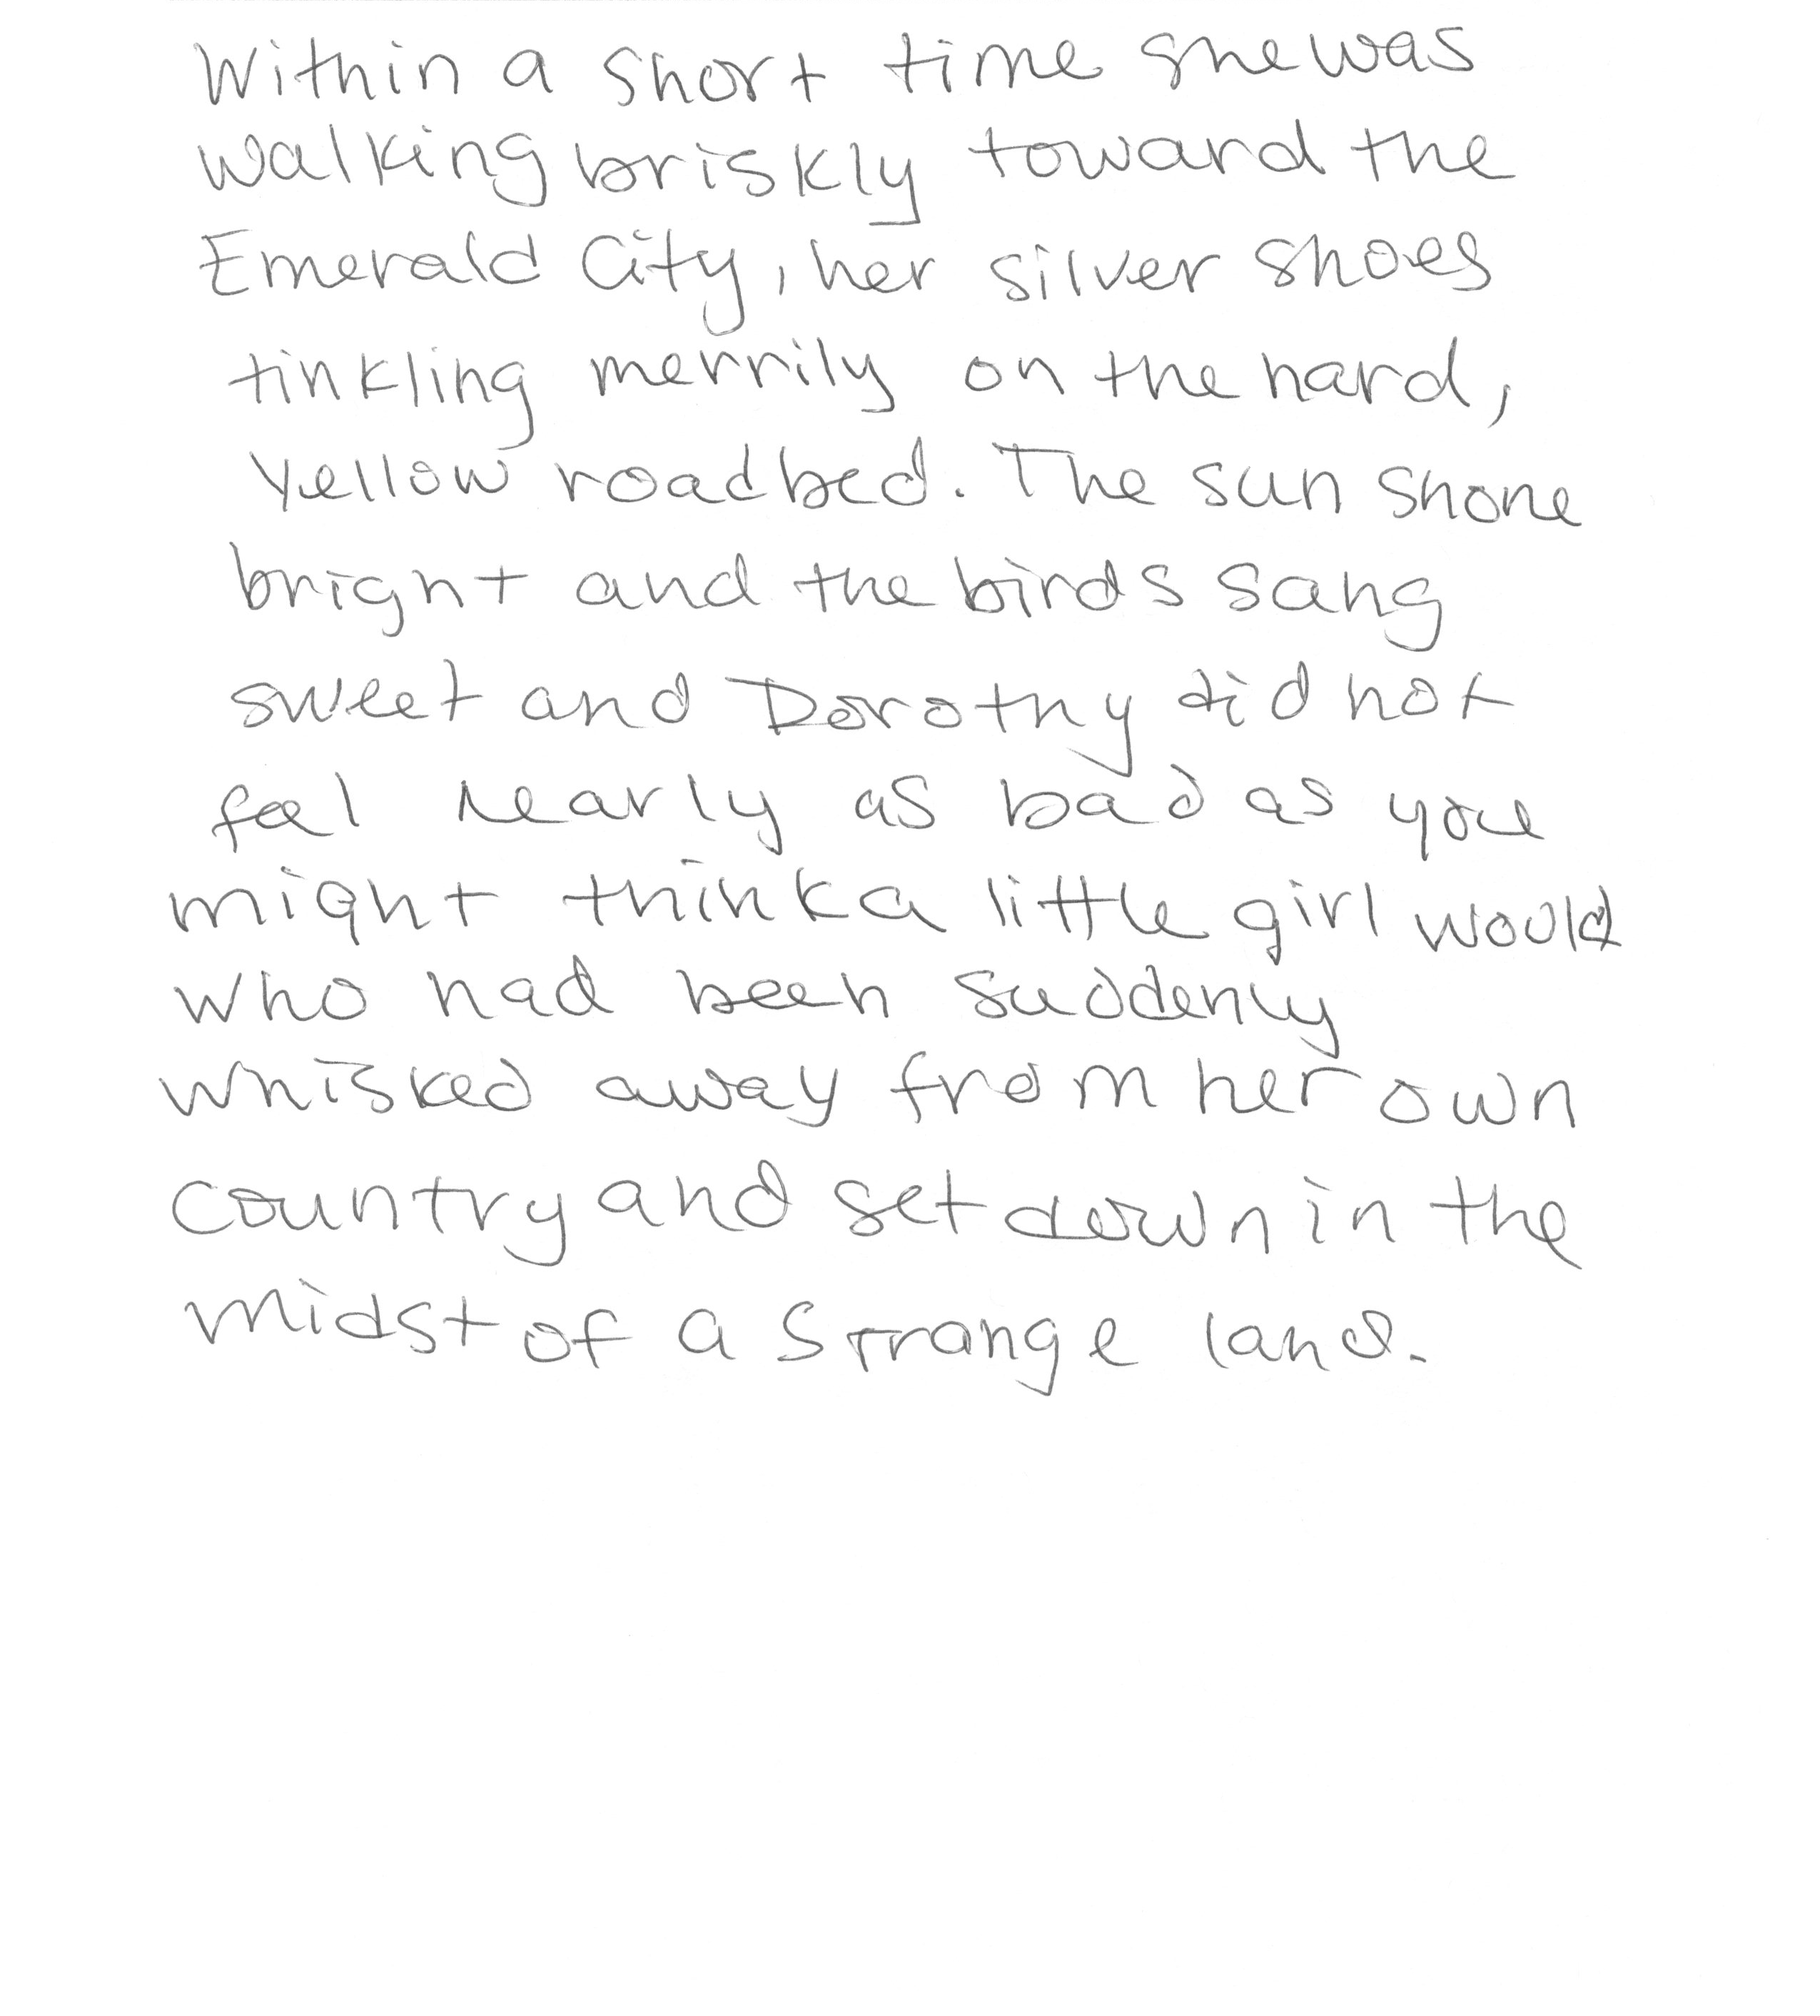 Within a short time she was
walking briskly toward the
Emerald City, her silver shoes
tinkling merrily on the hard,
yellow roadbed. The sun shone
bright and the birds sang
sweet and Dorothy did not
feel nearly as bad as you
might think a little girl would
who had been suddenly
whisked away from her own
country and set down in the
midst of a strange land.